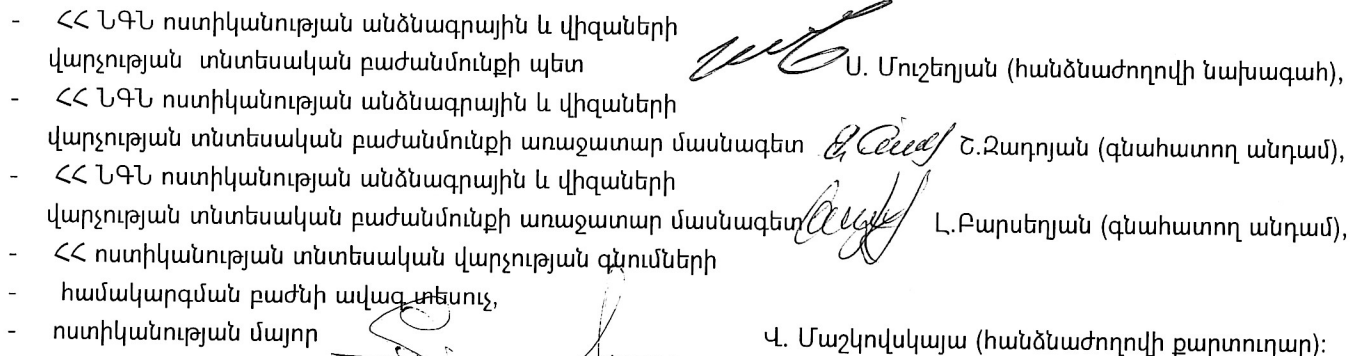 - ՀՀ ՆԳՆ ոստիկանության անձնագրային և վիզաների
վարչության տնտեսական բաժանմունքի պետ Ս. Մուշեղյան (հանձնաժողովի նախագահ),
- ՀՀ ՆԳՆ ոստիկանության անձնագրային և վիզաների
վարչության տնտեսական բաժանմունքի առաջատար մասնագետ Շ.Զադոյան (գնահատող անդամ),
- ՀՀ ՆԳՆ ոստիկանության անձնագրային և վիզաների
վարչության տնտեսական բաժանմունքի առաջատար մասնագետ Լ.Բարսեղյան (գնահատող անդամ),
- ՀՀ ոստիկանության տնտեսական վարչության գնումների
- համակարգման բաժնի ավագ տեսուչ,
- ոստիկանության մայոր Վ. Մաշկովսկայա (հանձնաժողովի քարտուղար):